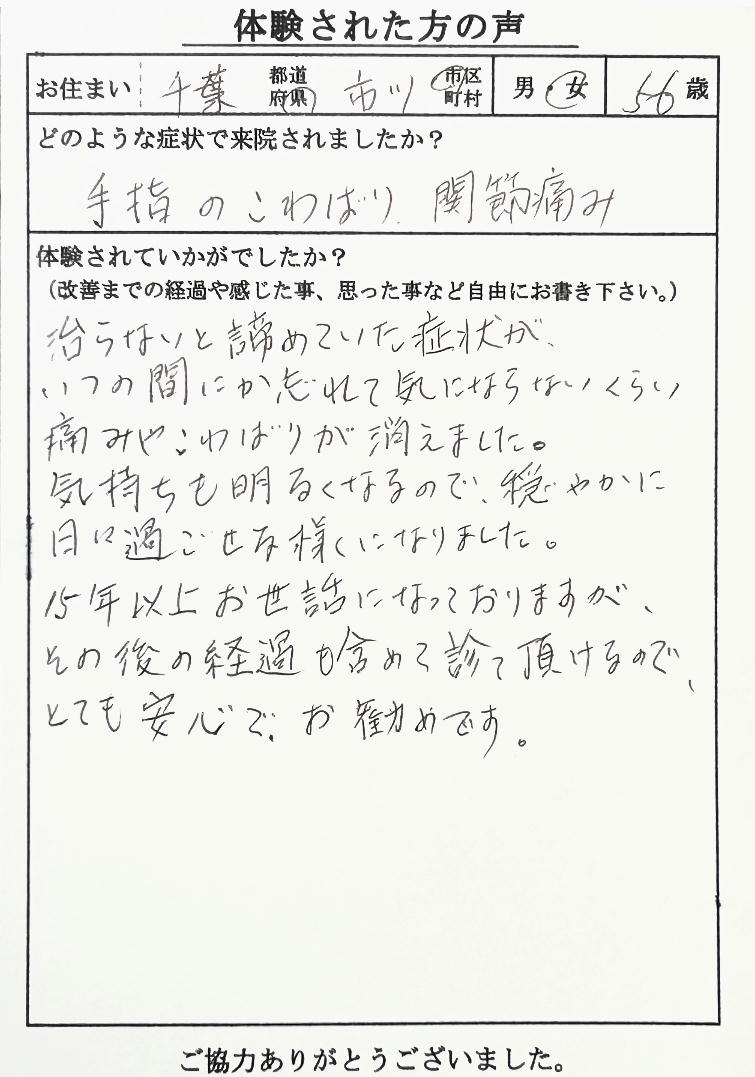 体験された方の声
お住まい 千葉 都道府県 市川 市区町村 男・女 56 歳
どのような症状で来院されましたか？
手指のこわばり、関節痛み
体験されていかがでしたか？
（改善までの経過や感じた事、思った事など自由にお書き下さい。）
治らないと諦めていた症状が、
いつの間にか忘れて気にならないくらい
痛みやこわばりが消えました。
気持ちも明るくなるので、穏やかに
日々過ごせる様になりました。
15年以上お世話になっておりますが、
その後の経過も含めて診て頂けるので、
とても安心で、お勧めです。
ご協力ありがとうございました。